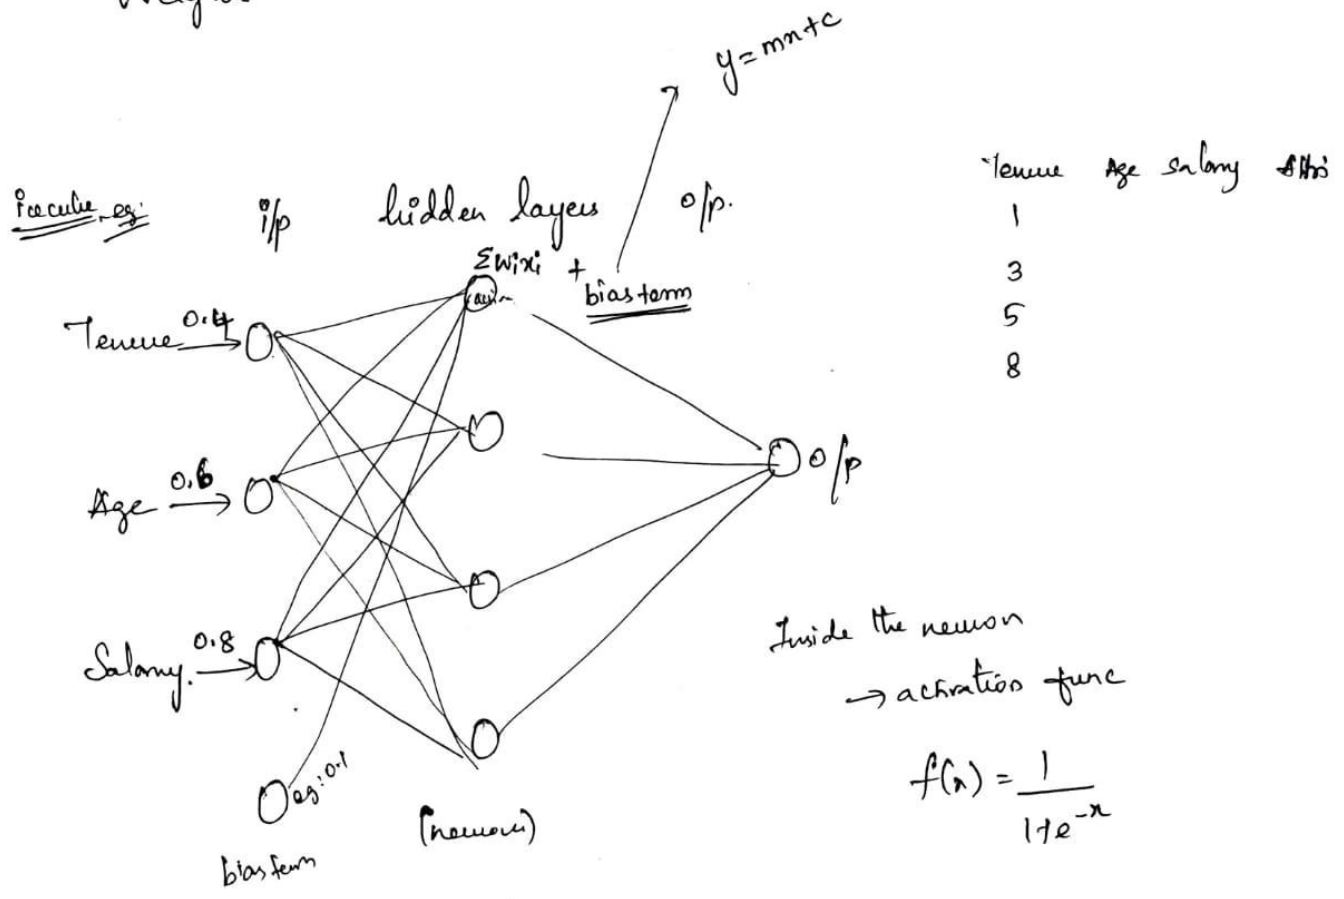 y = mx + c
Tenure Age Salary
1
3
5
8
eg:
i/p hidden layers o/p.
Σwixi + bias term
Tenure 0.4
Age 0.6
Salary. 0.8
eg: 0.1
bias term
(neuron)
o/p
Inside the neuron
→ activation func
f(x) = 1 / 1+e^-x